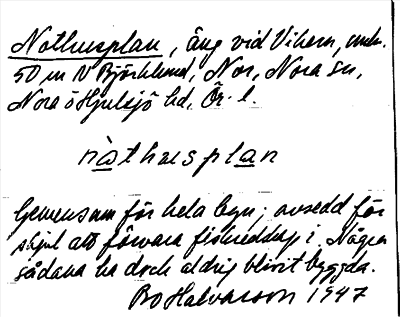 Nothusplan, äng vid Vikern, omkr.
50 m N Björklund, Nor, Nora sn,
Nora o Hjulsjö hd, Ör. l.
nòthusplan
Gemensam för hela byn; avsedd för
skjul att förvara fiskredskap i. Några
sådana ha dock aldrig blivit byggda.
Bo Halvarson 1947